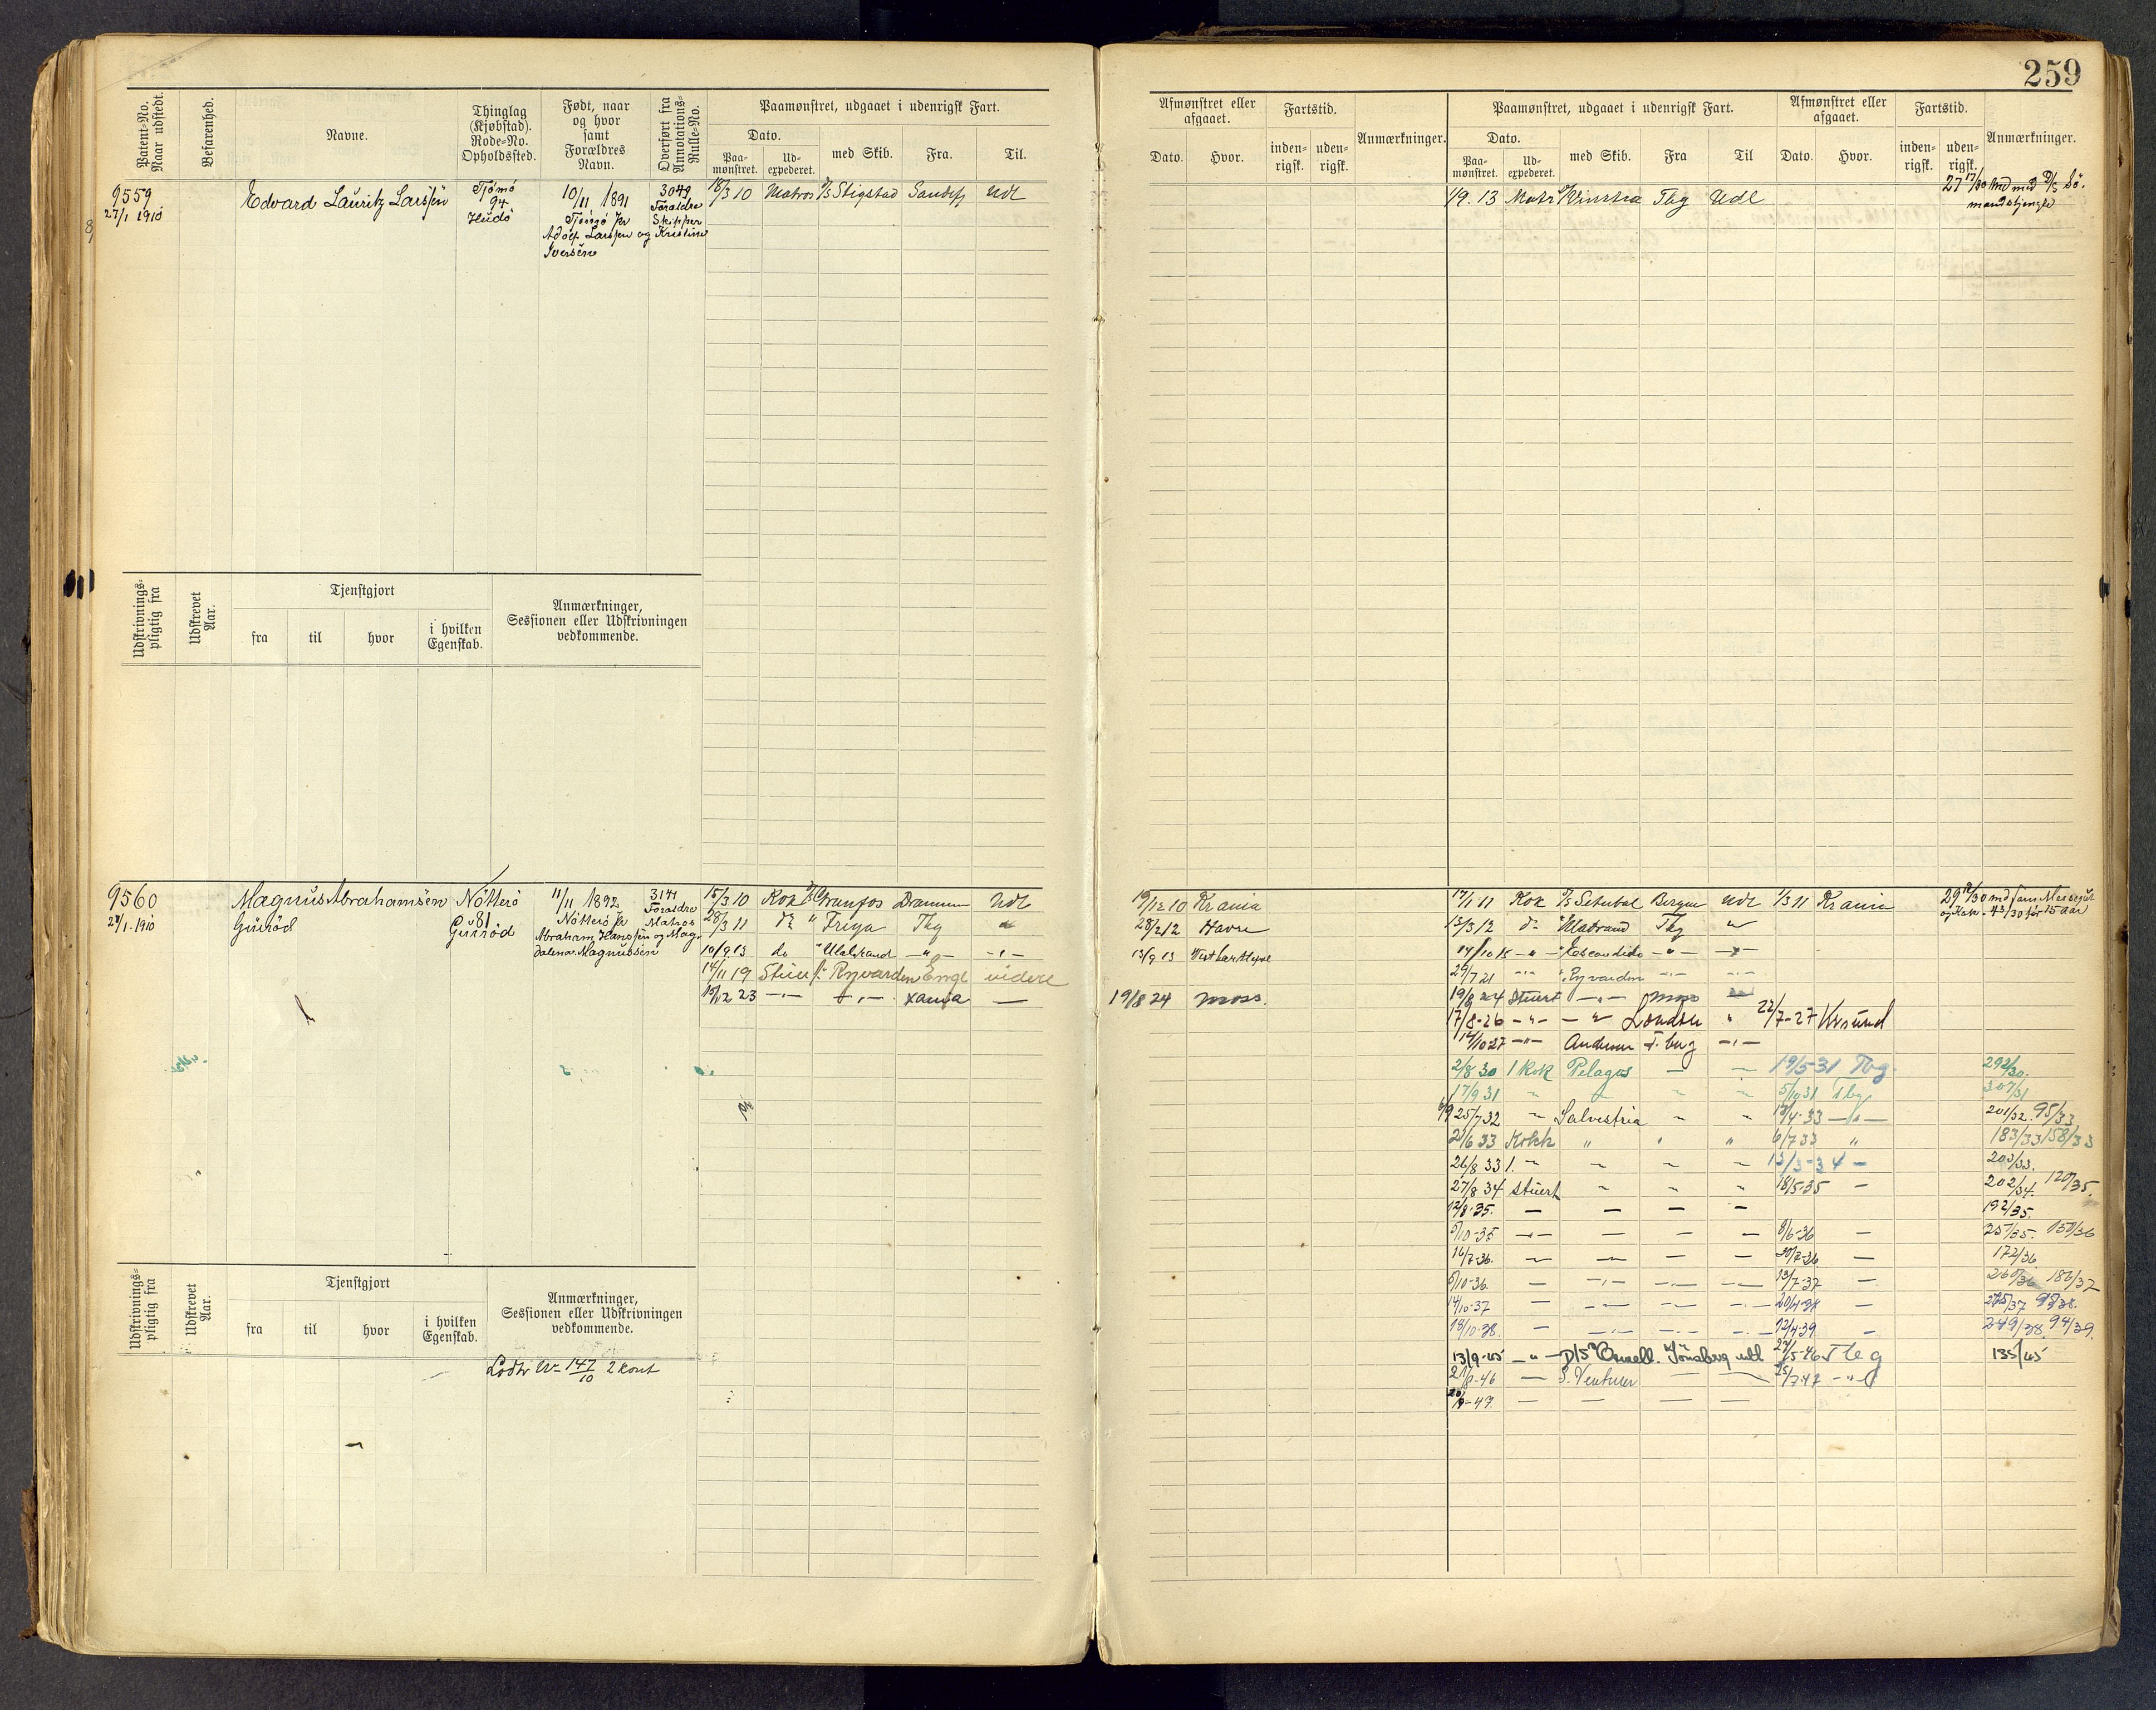 259
Patent-No. Naar udstedt.
Befarenhed.
Navne.
Thinglag (Kjøbstad). Rode-No. Opholdssted.
Født, naar og hvor samt Forældres Navn.
Overført fra Annotations-Rulle-No.
Paamønstret, udgaaet i udenrigsk Fart.
Dato.
Paa-mønstret.
Ud-expederet.
med Skib.
Fra.
Til.
Afmønstret eller afgaaet.
Dato.
Hvor.
Fartstid.
inden-rigsk.
uden-rigsk.
Anmærkninger.
Paamønstret, udgaaet i udenrigsk Fart.
Dato.
Paa-mønstret.
Ud-expederet.
med Skib.
Fra
Til
Afmønstret eller afgaaet.
Dato.
Hvor.
Fartstid.
inden-rigsk.
uden-rigsk.
Anmærkninger.
9559
27/1 1910
Edvard Lauritz Larssen
Tjømø
94
Hudø
10/11 1891
Tjømø
Adolf Larssen og Kristine
Iversen
3049
Foraldre
Skipper
18/3 10 Matros Stigstad Sandefj Udl
1/9. 13 Matr Vinstra Tbg Udl
Udskrivnings-pligtig fra
Udskrevet Aar.
Tjenstgjort
fra
til
hvor
i hvilken Egenskab.
Anmærkninger, Sessionen eller Udskrivningen vedkommende.
9560
27/1. 1910
Magnus Abrahamsen
Gurød
Nøtterø
81
Gurrød
11/11 1892
Nøtterø
Abraham Hanssen og Mag-
dalena Magnussen
3141
Foraldre
Matros
15/3 10 Kok Granfos Drammen Udl 19/12 10 Krania
28/3 11 do " Freya Tbg " 28/2 12 Havre
10/9 13 do " Ulabrand - " - - " - 13/9 13 Vest hartlepol
14/11 19 Stuert Ryvarden Engl videre
15/12 23 - " - - " - Xania — 19/8 24 Moss.
17/1 11 Kok Setubal Bergen Udl 1/3 11 Krania
13/3 12 do " Ulabrand Tbg "
14/10 15 - " - Escondido - " -
29/7 21 - " - Ryvarden - " - - " -
19/8 24 Stuert - " - Moss
17/8-26 - " - - " London " 22/7-27 Krsund
14/10 27 - " - Anderson T.berg - " -
2/8 30 1 Kok Pelagos — — 19/5-31 Tbg. 292/30.
17/9 31 " " " " 5/10 31 Tbg 307/31
25/7 32 " Salvestria " " 18/4-33 - " - 201/32. 95/33
21/6 33 Kokk " " " 6/7 33 " 183/33 158/33
26/8 33 1. " " " " 13/3-34 — 203/33.
27/8 34 Stuert " " " 18/5-35 — 202/34. 120/35.
12/8-35. — — — — 192/35.
5/10-35 — — — — 8/6-36 — 257/35. 150/36
16/7-36. — — — — 20/7-36 — 172/36
5/10-36 — — — — 13/7-37 — 260/36 186/37
14/10-37 — — — — 20/4-38 — 275/37 95/38.
18/10-38. — — — — 12/4-39 — 249/38. 94/39.
13/9-45 - " - D/S Tønsberg udl 135/45
21/8-46 — S. Venturer — —
— — — —
Udskrivnings-pligtig fra
Udskrevet Aar.
Tjenstgjort
fra
til
hvor
i hvilken Egenskab.
Anmærkninger, Sessionen eller Udskrivningen vedkommende.
Lodtr No 147/10 2 kont